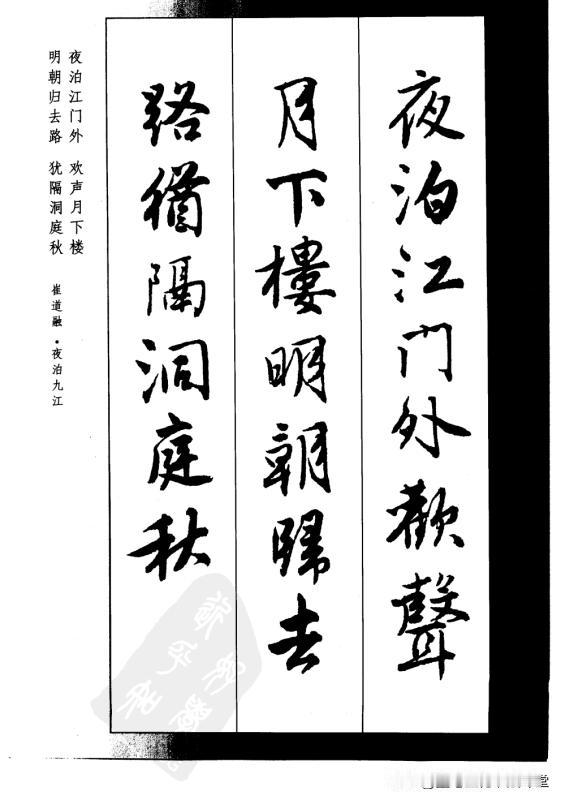 夜泊江門外歡聲
月下樓明朝歸去
路猶隔洞庭秋
夜泊江门外 欢声月下楼
明朝归去路 犹隔洞庭秋
崔道融·夜泊九江
堂